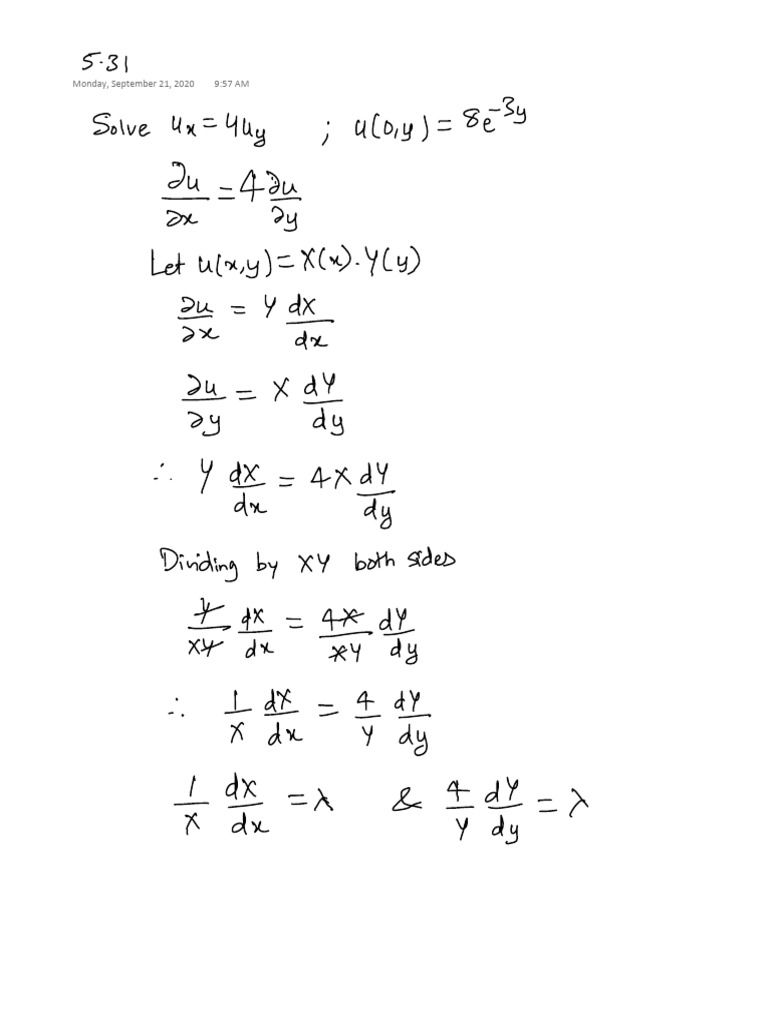 5.31
Monday, September 21, 2020 9:57 AM
Solve ux = 4uy ; u(0,y) = 8e^-3y
∂u/∂x = 4 ∂u/∂y
Let u(x,y) = X(x).Y(y)
∂u/∂x = Y dX/dx
∂u/∂y = X dY/dy
∴ Y dX/dx = 4X dY/dy
Dividing by XY both sides
Y/XY dX/dx = 4X/XY dY/dy
∴ 1/X dX/dx = 4/Y dY/dy
1/X dX/dx = λ & 4/Y dY/dy = λ